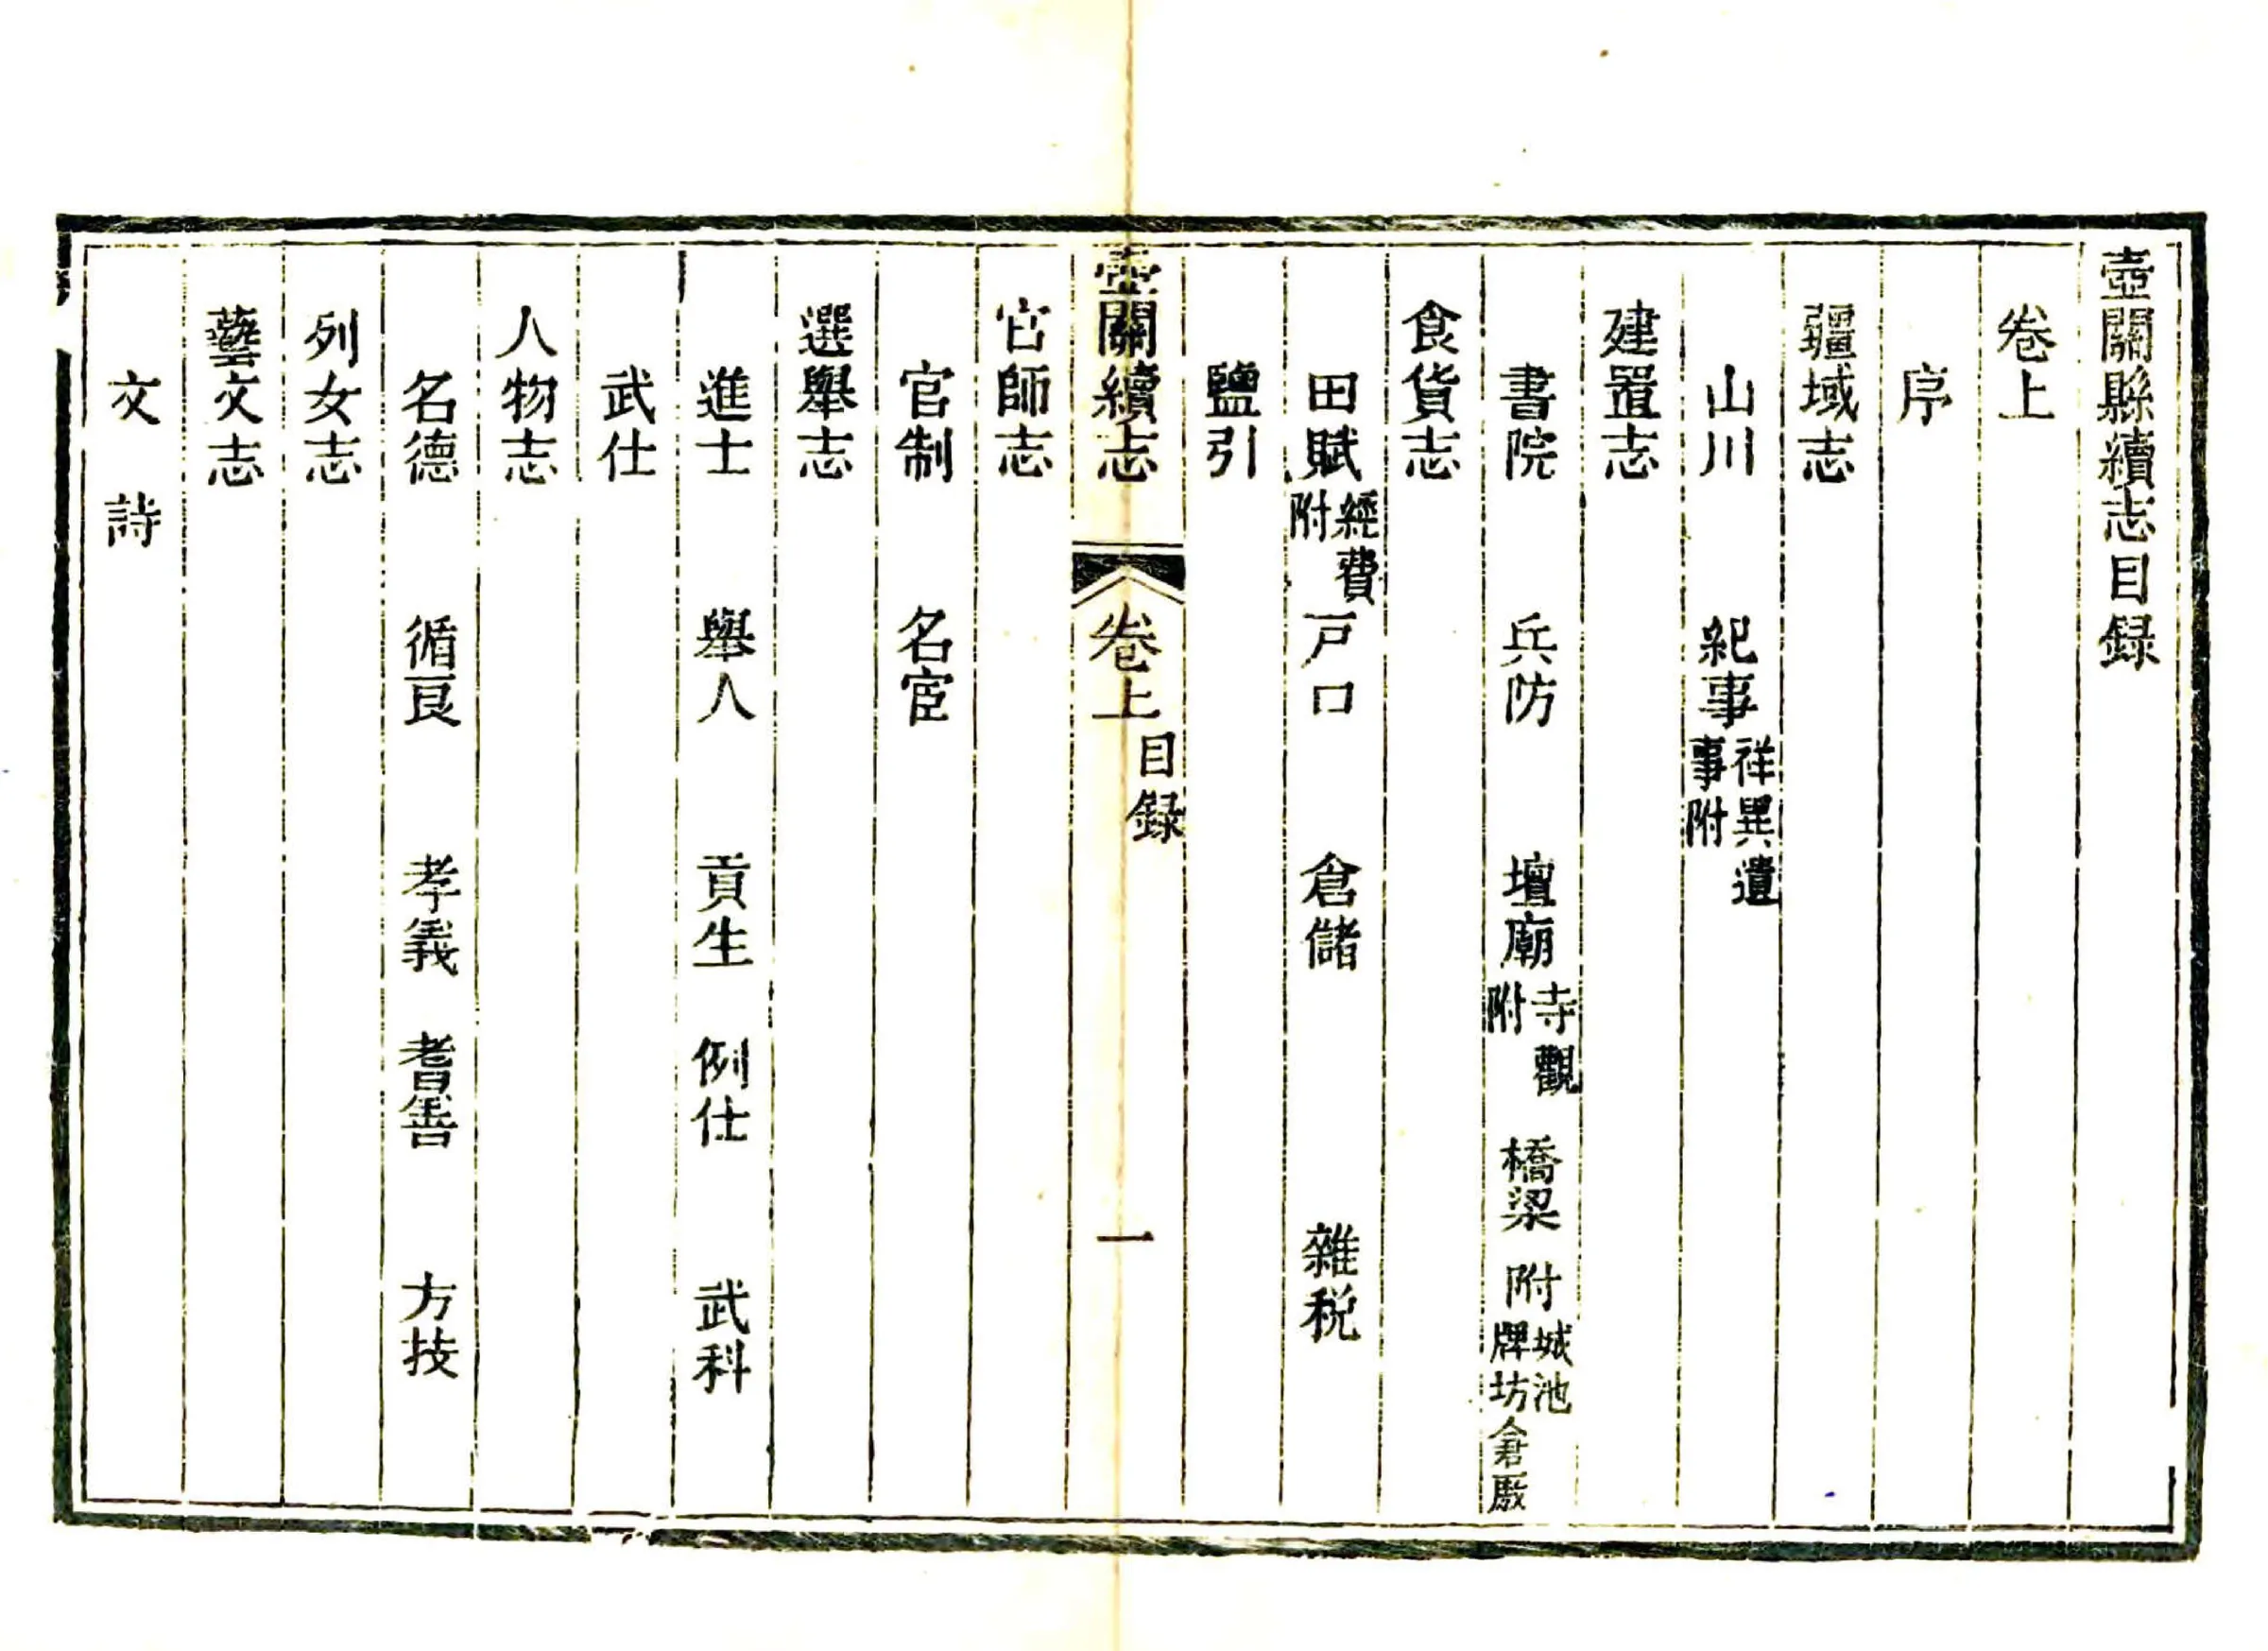 壺關縣續志目録
卷上
序
疆域志
山川 紀事祥異遺事附
建置志
書院 兵防 壇廟寺觀附 橋梁 附城池牌坊倉厫
食貨志
田賦經費附 戸口 倉儲 雜税
鹽引
壺關續志 卷上 目録 一
官師志
官制 名宦
選舉志
進士 舉人 貢生 例仕 武科
武仕
人物志
名德 循良 孝義 耆善 方技
列女志
藝文志
文 詩